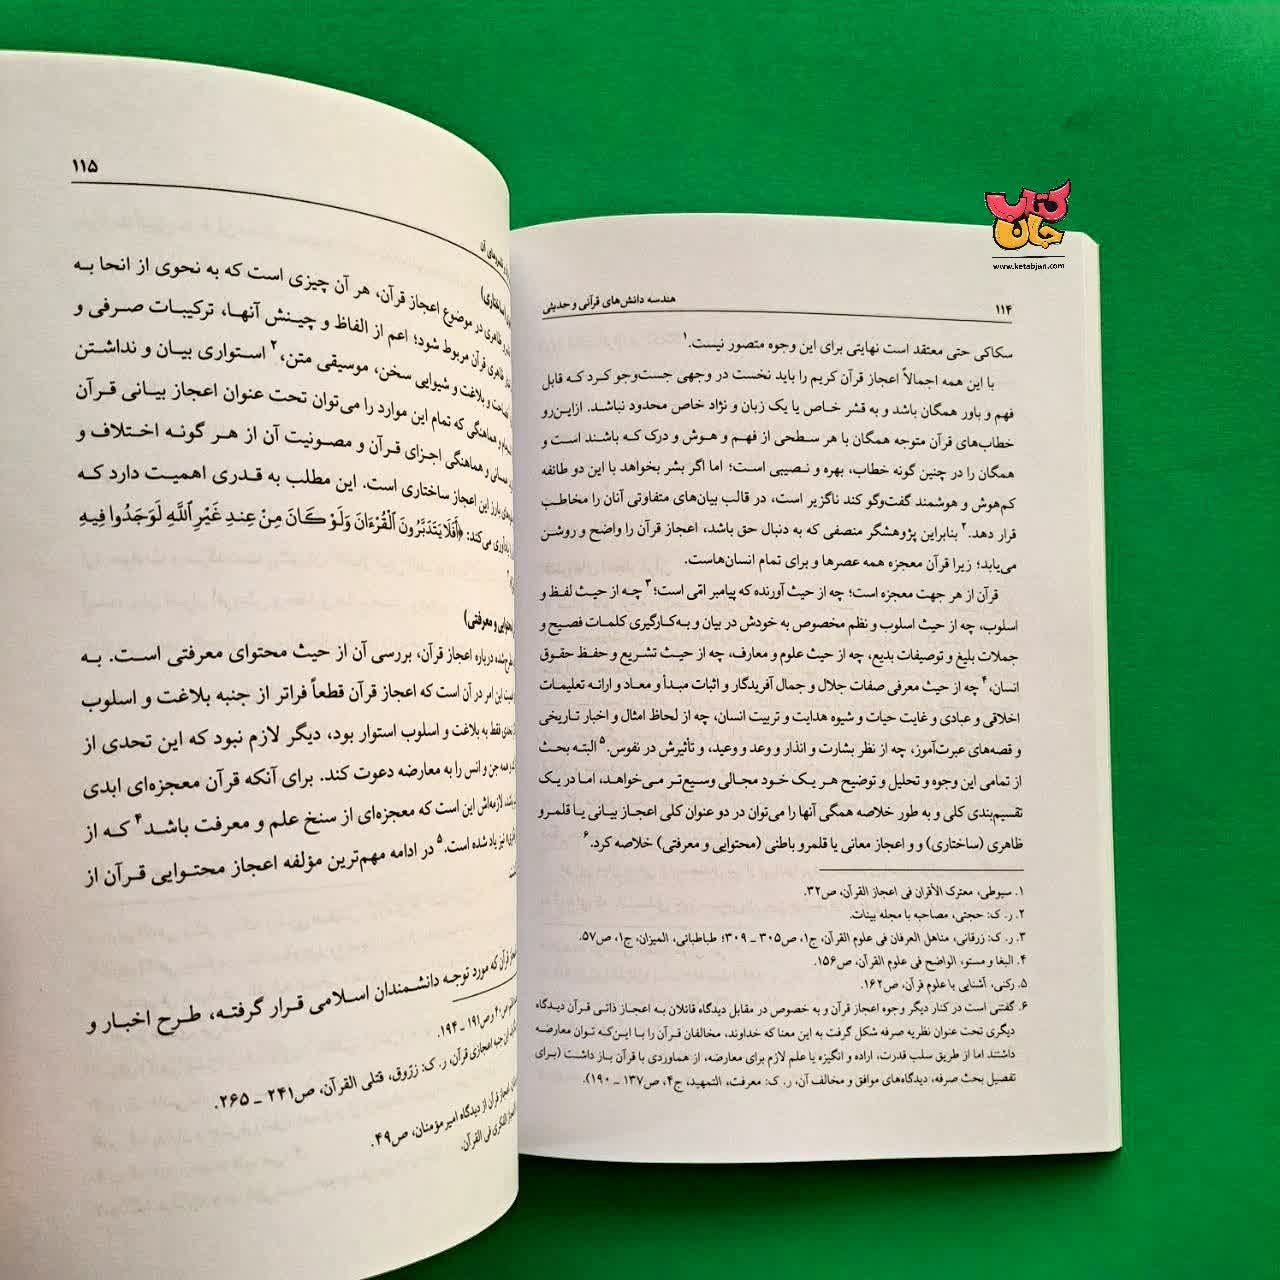 کتاب جان
www.ketabjan.com
۱۱۴
هندسه دانش‌های قرآنی و حدیثی
سکاکی حتی معتقد است نهایتی برای این وجوه متصور نیست.۱
با این همه اجمالاً اعجاز قرآن کریم را باید نخست در وجهی جست‌وجو کرد که قابل
فهم و باور همگان باشد و به قشر خاص یا یک زبان و نژاد خاص محدود نباشد. ازاین‌رو
خطاب‌های قرآن متوجه همگان با هر سطحی از فهم و هوش و درک که باشند است و
همگان را در چنین گونه خطاب، بهره و نصیبی است؛ اما اگر بشر بخواهد با این دو طائفه
کم‌هوش و هوشمند گفت‌وگو کند ناگزیر است، در قالب بیان‌های متفاوتی آنان را مخاطب
قرار دهد.۲ بنابراین پژوهشگر منصفی که به دنبال حق باشد، اعجاز قرآن را واضح و روشن
می‌یابد؛ زیرا قرآن معجزه همه عصرها و برای تمام انسان‌هاست.
قرآن از هر جهت معجزه است؛ چه از حیث آورنده که پیامبر امّی است؛۳ چه از حیث لفظ و
اسلوب، چه از حیث اسلوب و نظم مخصوص به خودش در بیان و به‌کارگیری کلمات فصیح و
جملات بلیغ و توصیفات بدیع، چه از حیث علوم و معارف، چه از حیث تشریع و حفظ حقوق
انسان،۴ چه از حیث معرفی صفات جلال و جمال آفریدگار و اثبات مبدأ و معاد و ارائه تعلیمات
اخلاقی و عبادی و غایت حیات و شیوه هدایت و تربیت انسان، چه از لحاظ امثال و اخبار تاریخی
و قصه‌های عبرت‌آموز، چه از نظر بشارت و انذار و وعد و وعید، و تأثیرش در نفوس.۵ البته بحث
از تمامی این وجوه و تحلیل و توضیح هر یک خود مجالی وسیع‌تر می‌خواهد، اما در یک
تقسیم‌بندی کلی و به طور خلاصه همگی آنها را می‌توان در دو عنوان کلی اعجاز بیانی یا قلمرو
ظاهری (ساختاری) و و اعجاز معانی یا قلمرو باطنی (محتوایی و معرفتی) خلاصه کرد.۶
۱. سیوطی، معترک الأقران فی اعجاز القرآن، ص۳۲.
۲. ر. ک: حجتی، مصاحبه با مجله بینات.
۳. ر. ک: زرقانی، مناهل العرفان فی علوم القرآن، ج۱، ص۳۰۵ ـ ۳۰۹؛ طباطبائی، المیزان، ج۱، ص۵۷.
۴. البغا و مستو، الواضح فی علوم القرآن، ص۱۵۶.
۵. رکنی، آشنایی با علوم قرآن، ص۱۶۲.
۶. گفتنی است در کنار دیگر وجوه اعجاز قرآن و به خصوص در مقابل دیدگاه قائلان به اعجاز ذاتی قرآن دیدگاه
دیگری تحت عنوان نظریه صرفه شکل گرفت به این معنا که خداوند، مخالفان قرآن را با این‌که توان معارضه
داشتند اما از طریق سلب قدرت، اراده و انگیزه یا علم لازم برای معارضه، از هماوردی با قرآن باز داشت (برای
تفصیل بحث صرفه، دیدگاه‌های موافق و مخالف آن، ر. ک: معرفت، التمهید، ج۴، ص۱۳۷ ـ ۱۹۰).
۱۱۵
ساختاری)
ظاهری در موضوع اعجاز قرآن، هر آن چیزی است که به نحوی از انحا به
ظاهری قرآن مربوط شود؛ اعم از الفاظ و چینش آنها، ترکیبات صرفی و
و بلاغت و شیوایی سخن، موسیقی متن،۲ استواری بیان و نداشتن
و هماهنگی که تمام این موارد را می‌توان تحت عنوان اعجاز بیانی قرآن
و هماهنگی اجزای قرآن و مصونیت آن از هر گونه اختلاف و
بارز این اعجاز ساختاری است. این مطلب به قدری اهمیت دارد که
می‌کند: ﴿أَفَلَا يَتَدَبَّرُونَ ٱلْقُرْءَانَ وَلَوْ كَانَ مِنْ عِندِ غَيْرِ ٱللَّهِ لَوَجَدُوا فِيهِ
و معرفتی)
درباره اعجاز قرآن، بررسی آن از حیث محتوای معرفتی است. به
این امر در آن است که اعجاز قرآن قطعاً فراتر از جنبه بلاغت و اسلوب
فقط به بلاغت و اسلوب استوار بود، دیگر لازم نبود که این تحدی از
همه جن و انس را به معارضه دعوت کند. برای آنکه قرآن معجزه‌ای ابدی
لازمه‌اش این است که معجزه‌ای از سنخ علم و معرفت باشد۴ که از
نیز یاد شده است.۵ در ادامه مهم‌ترین مؤلفه اعجاز محتوایی قرآن از
قرآن که مورد توجه دانشمندان اسلامی قرار گرفته، طرح اخبار و
ص۱۹۱ ـ ۱۹۴.
جنبه اعجازی قرآن، ر. ک: زرّوق، قتلی القرآن، ص۲۴۱ ـ ۲۶۵.
قرآن از دیدگاه امیرمؤمنان، ص۴۹.
الفکری فی القرآن.